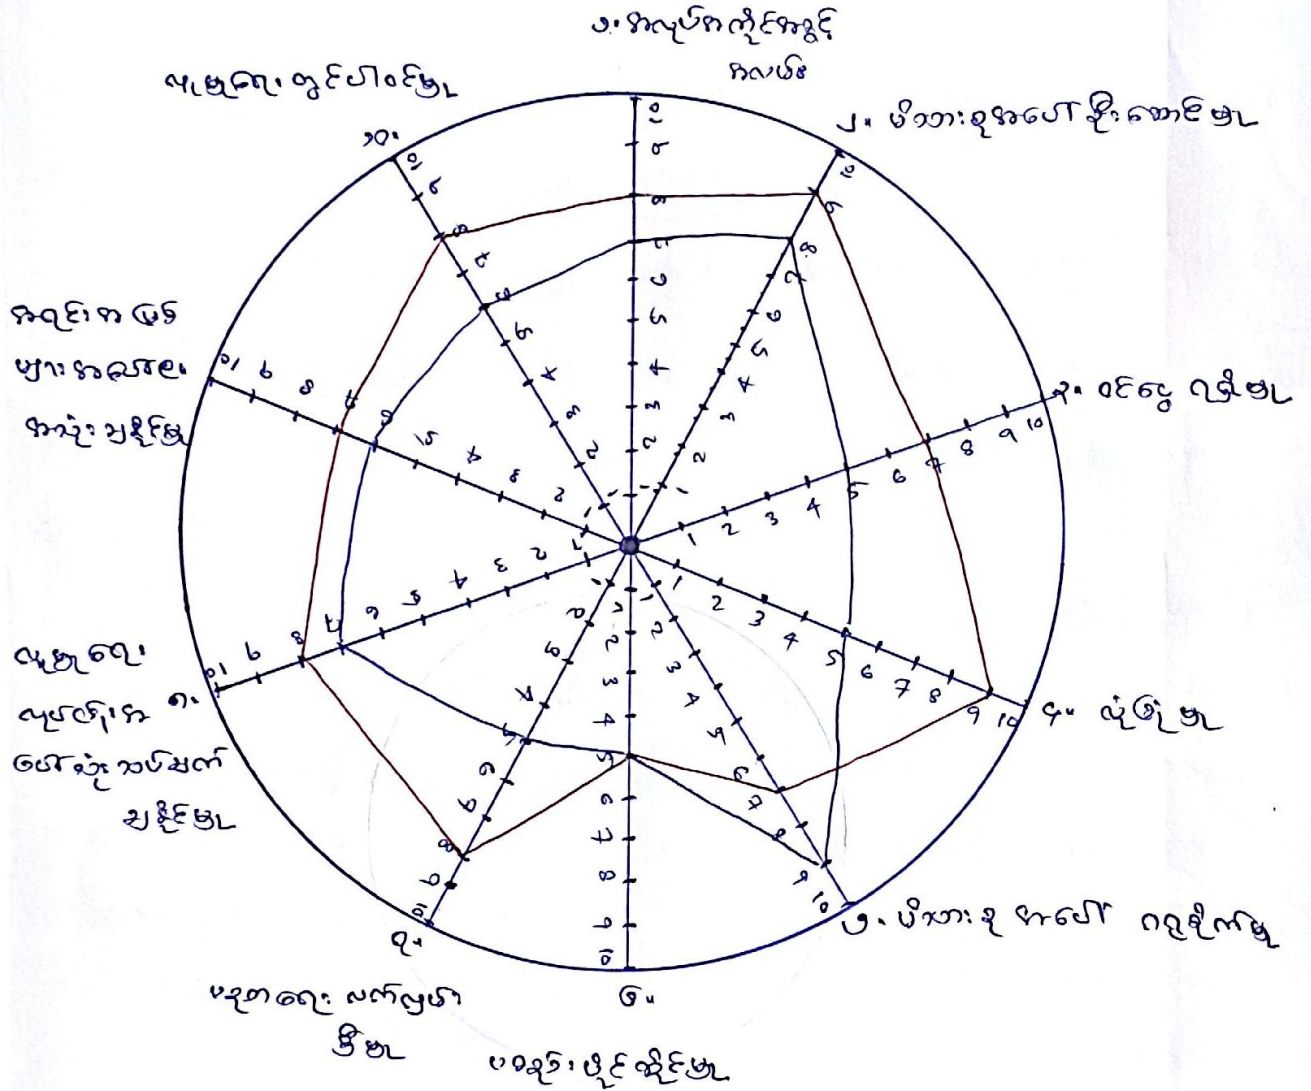 ၁. အလုပ်အကိုင်အခွင့်
အလမ်း
၂။ မိသားစုအပေါ် ဦးဆောင်မှု
၃. ဝင်ငွေ ရရှိမှု
၄။ လုံခြုံမှု
၅. မိသားစု အပေါ် ဂရုစိုက်မှု
၆။
ပစ္စည်းပိုင်ဆိုင်မှု
၇။
ပညာရေး လက်လှမ်း
မီမှု
၈.
လူမှုရေး
အပေါ်သုံးသပ်ချက်
ချနိုင်မှု
အရင်းအမြစ်
များအသုံးချနိုင်မှု
၁၀.
လူမှုရေး တွင်ပါဝင်မှု
1 2 3 4 5 6 7 8 9 10
1 2 3 4 5 6 7 8 9 10
1 2 3 4 5 6 7 8 9 10
1 2 3 4 5 6 7 8 9 10
1 2 3 4 5 6 7 8 9 10
1 2 3 4 5 6 7 8 9 10
1 2 3 4 5 6 7 8 9 10
1 2 3 4 5 6 7 8 9 10
1 2 3 4 5 6 7 8 9 10
1 2 3 4 5 6 7 8 9 10